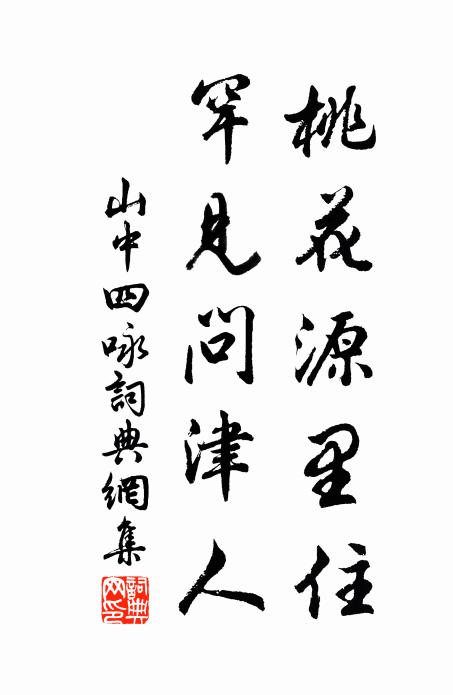 桃花源里住
罕見問津人
山中四咏詞典網集